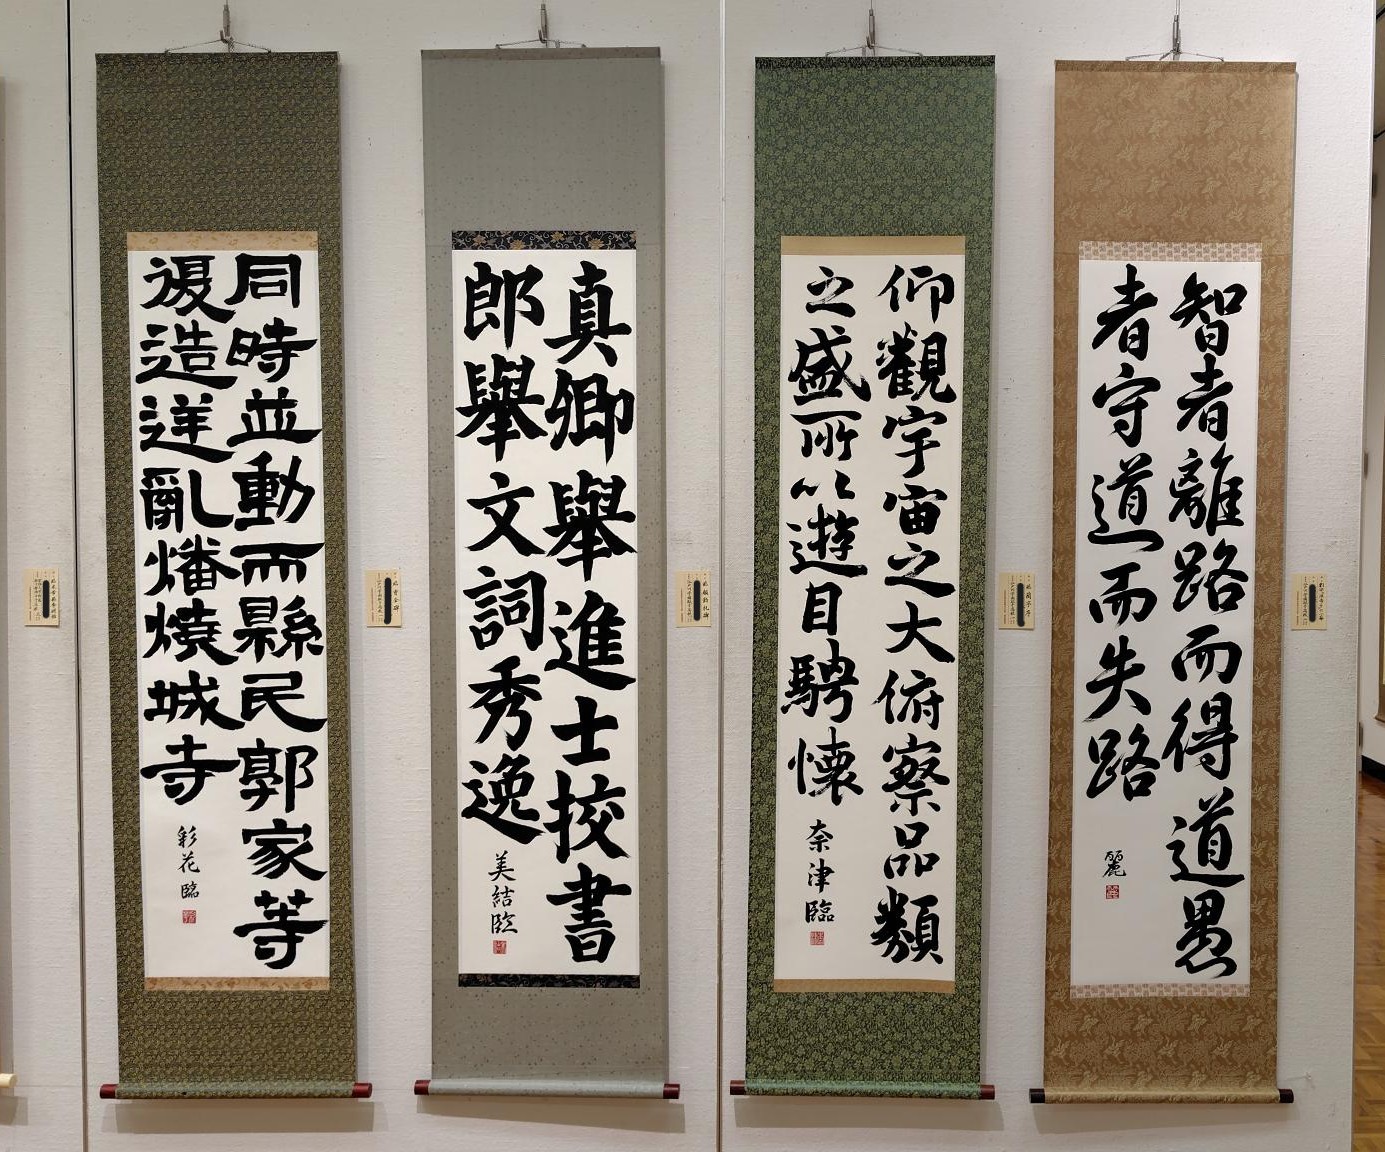 智者離路而得道愚
者守道而失路
麗
仰觀宇宙之大俯察品類
之盛所以遊目騁懐
奈津臨
真卿舉進士挍書
郎舉文詞秀逸
美結臨
同時並動而縣民郭家等
復造逆亂燔燒城寺
彩花臨